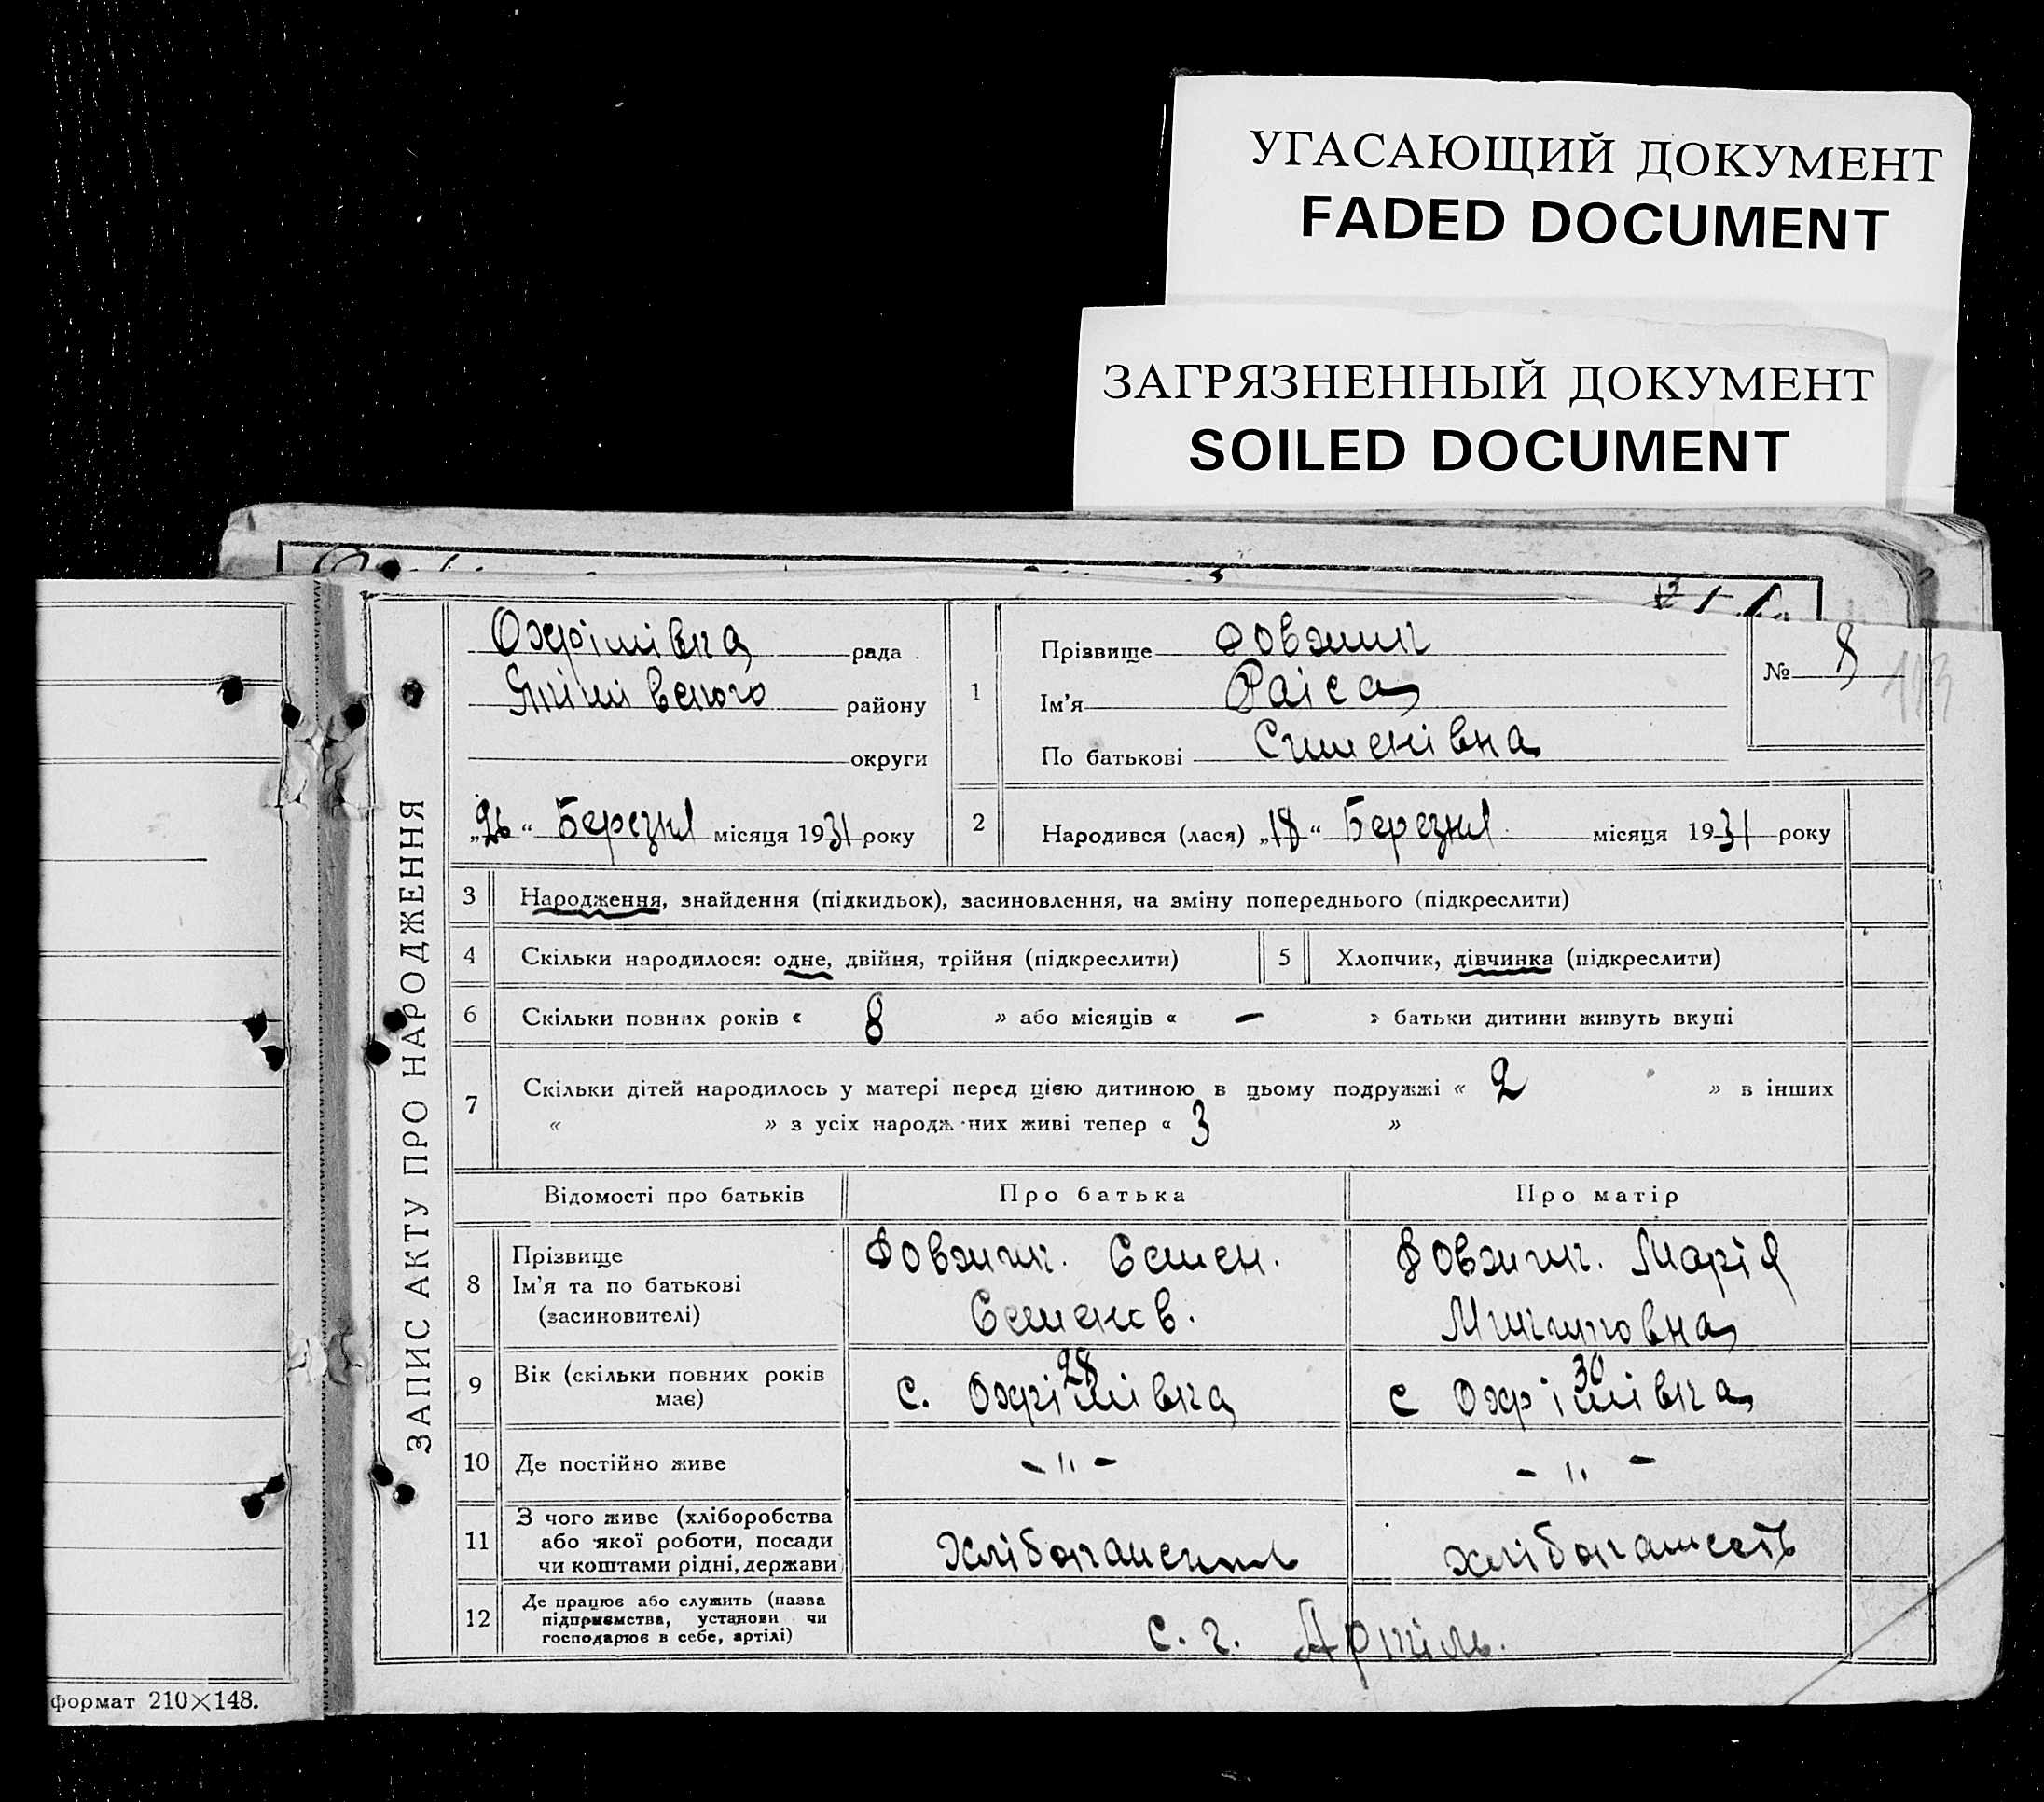 УГАСАЮЩИЙ ДОКУМЕНТ
FADED DOCUMENT
ЗАГРЯЗНЕННЫЙ ДОКУМЕНТ
SOILED DOCUMENT
ЗАПИС АКТУ ПРО НАРОДЖЕННЯ
Охрімівка рада
Якімівського району
округи
„26“ Березня місяця 1931 року
1
Прізвище Довжик
Ім'я Раіса
По батькові Сименівна
№ 8
193
2 Народився (лася) „18“ Березня місяця 1931 року
3 Народження, знайдення (підкидьок), засиновлення, на зміну попереднього (підкреслити)
4 Скільки народилося: одне, двійня, трійня (підкреслити) 5 Хлопчик, дівчинка (підкреслити)
6 Скільки повних років « 8 » або місяців « – » батьки дитини живуть вкупі
7 Скільки дітей народилось у матері перед цією дитиною в цьому подружжі « 2 » в інших
« » з усіх народж них живі тепер « 3 »
Відомості про батьків Про батька Про матір
8 Прізвище Довжик. Семен. Довжик. Марія
Ім'я та по батькові
(засиновителі) Семенов.
9 Вік (скільки повних років має) 28 30
с. Охрімівка с Охрімівка
10 Де постійно живе - " - - " -
11 З чого живе (хліборобства
або якої роботи, посади
чи коштами рідні, держави)
12 Де працює або служить (назва
підприємства, установи чи
господарює в себе, артілі) с. г. Артіль.
формат 210×148.